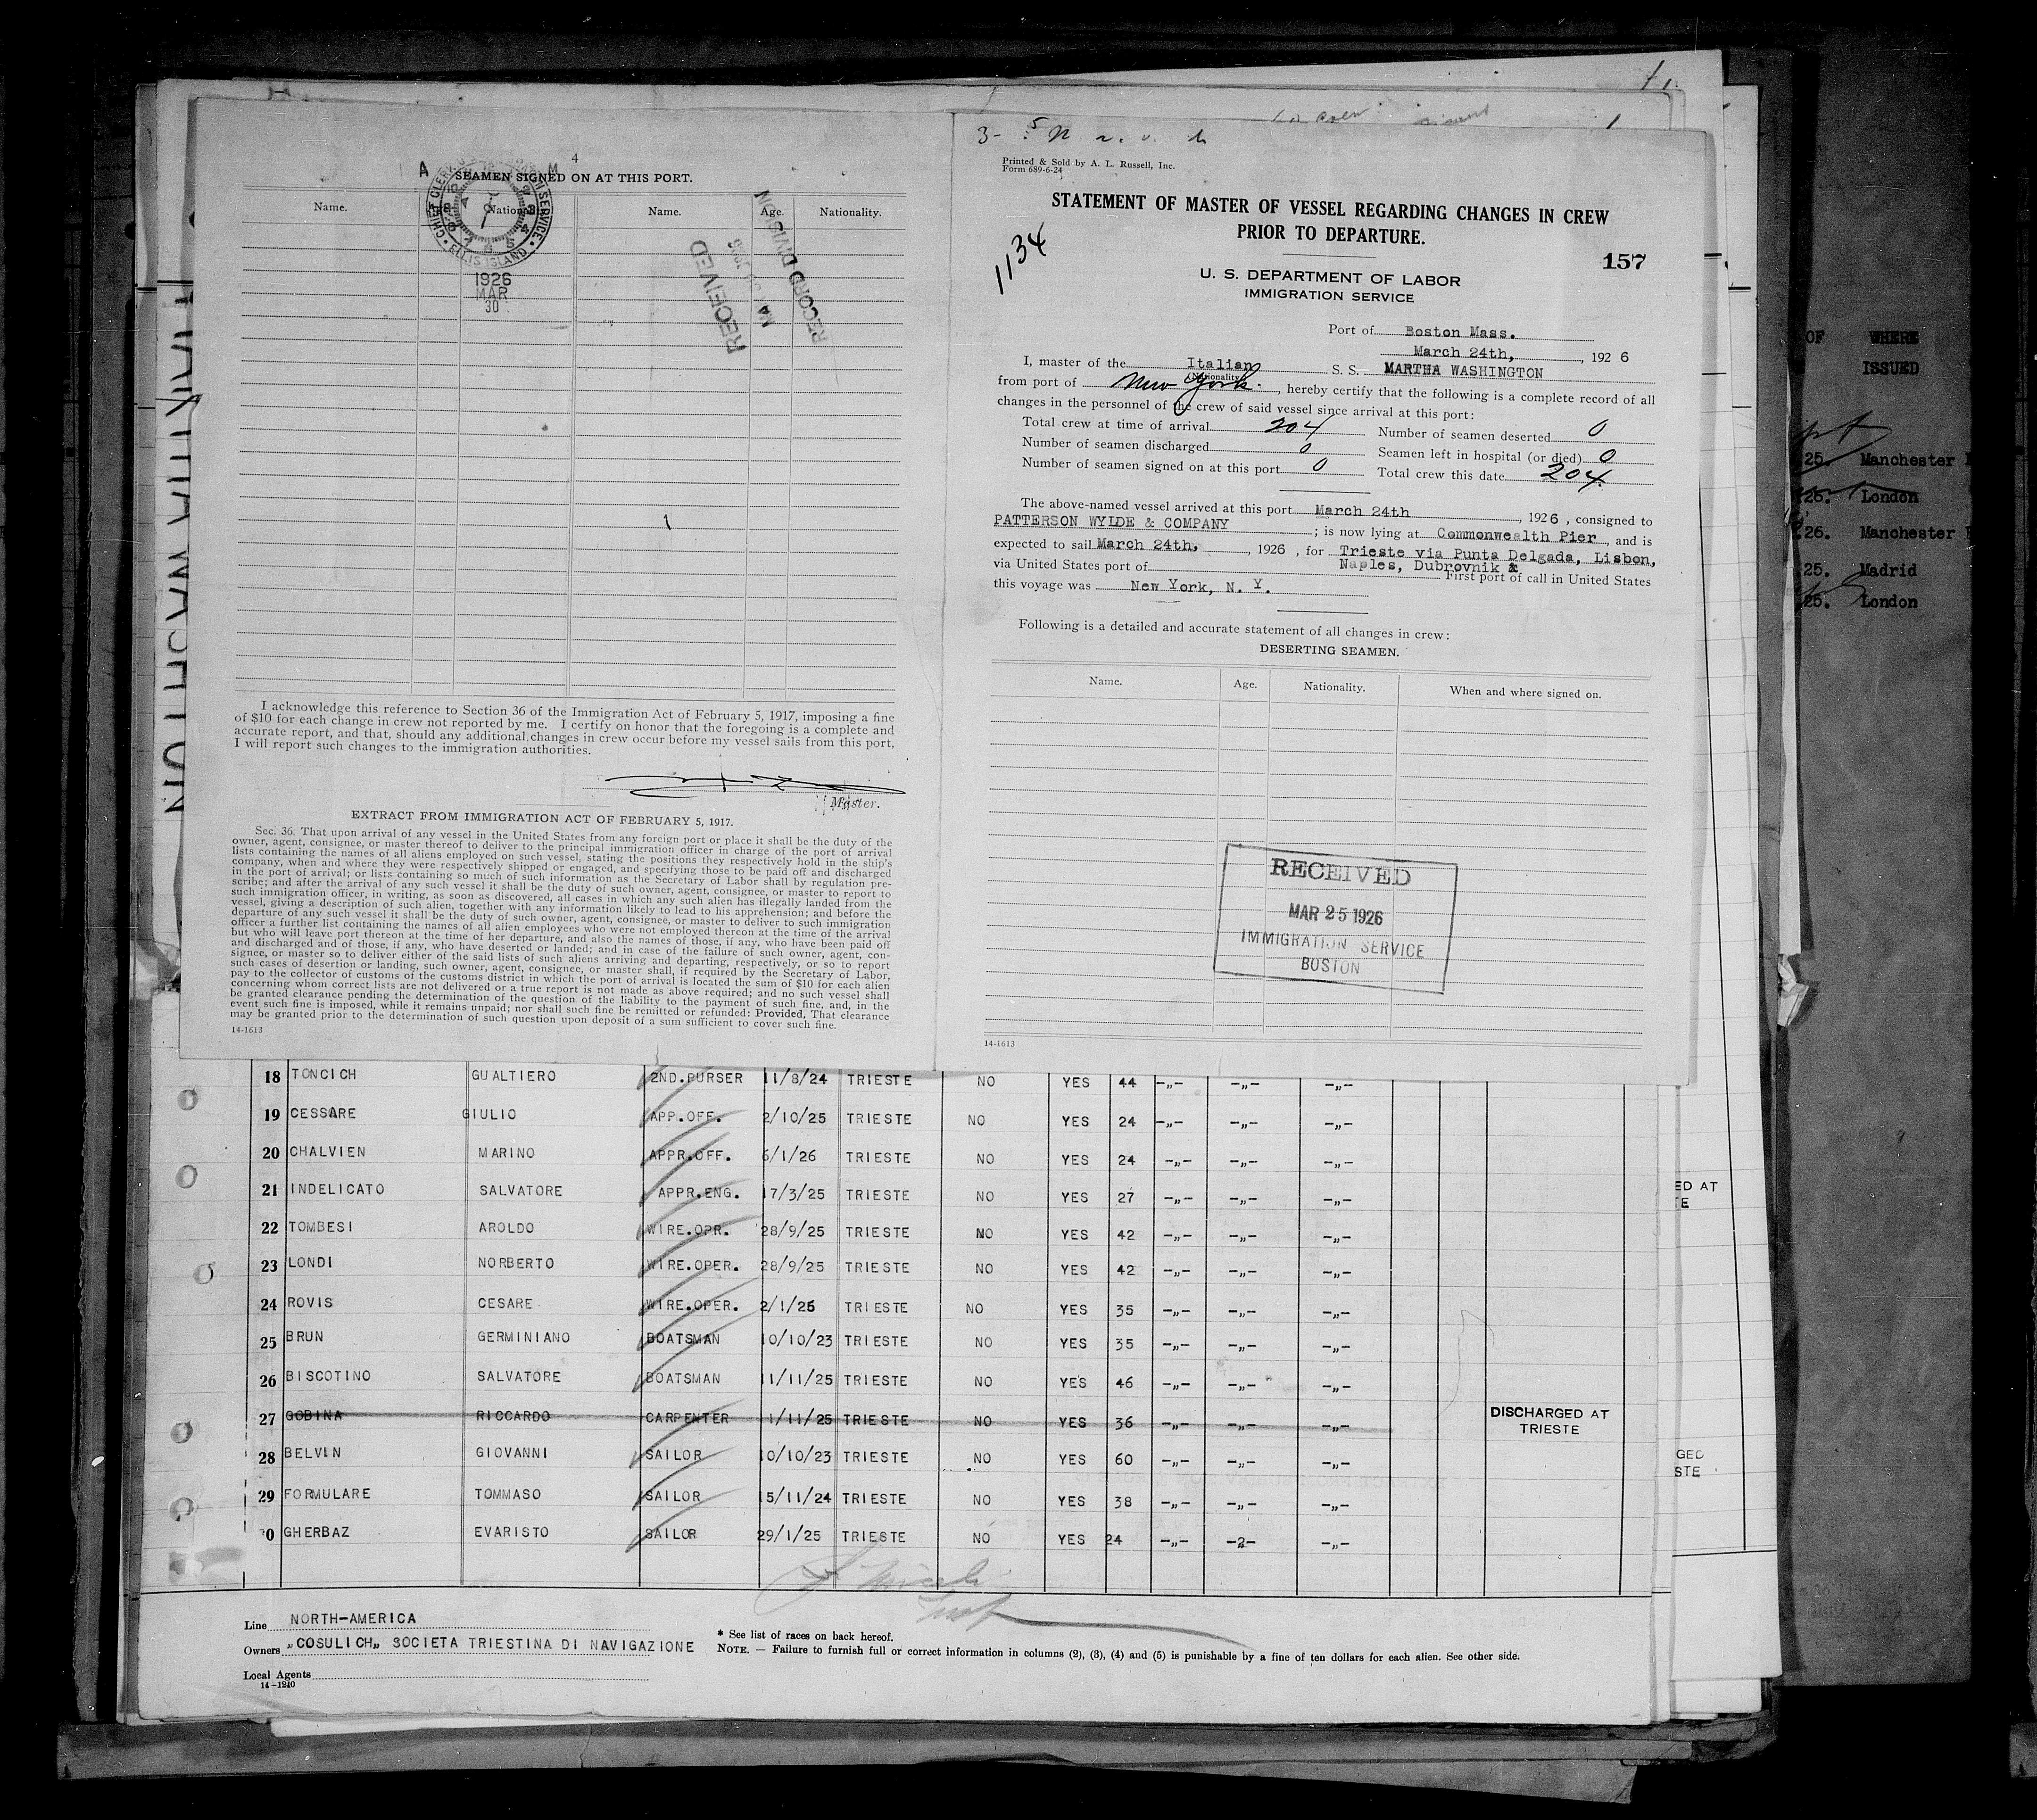 4
SEAMEN SIGNED ON AT THIS PORT.
Name. Nation Name. Age. Nationality.
ELLIS ISLAND
1926
MAR
30
RECEIVED
RECORD DIVISION
I acknowledge this reference to Section 36 of the Immigration Act of February 5, 1917, imposing a fine
of $10 for each change in crew not reported by me. I certify on honor that the foregoing is a complete and
accurate report, and that, should any additional changes in crew occur before my vessel sails from this port,
I will report such changes to the immigration authorities.
Master.
EXTRACT FROM IMMIGRATION ACT OF FEBRUARY 5, 1917.
Sec. 36. That upon arrival of any vessel in the United States from any foreign port or place it shall be the duty of the
owner, agent, consignee, or master thereof to deliver to the principal immigration officer in charge of the port of arrival
lists containing the names of all aliens employed on such vessel, stating the positions they respectively hold in the ship's
company, when and where they were respectively shipped or engaged, and specifying those to be paid off and discharged
in the port of arrival; or lists containing so much of such information as the Secretary of Labor shall by regulation pre-
scribe; and after the arrival of any such vessel it shall be the duty of such owner, agent, consignee, or master to report to
such immigration officer, in writing, as soon as discovered, all cases in which any such alien has illegally landed from the
vessel, giving a description of such alien, together with any information likely to lead to his apprehension; and before the
departure of any such vessel it shall be the duty of such owner, agent, consignee, or master to deliver to such immigration
officer a further list containing the names of all alien employees who were not employed thereon at the time of the arrival
but who will leave port thereon at the time of her departure, and also the names of those, if any, who have been paid off
and discharged and of those, if any, who have deserted or landed; and in case of the failure of such owner, agent, con-
signee, or master so to deliver either of the said lists of such aliens arriving and departing, respectively, or so to report
such cases of desertion or landing, such owner, agent, consignee, or master shall, if required by the Secretary of Labor,
pay to the collector of customs of the customs district in which the port of arrival is located the sum of $10 for each alien
concerning whom correct lists are not delivered or a true report is not made as above required; and no such vessel shall
be granted clearance pending the determination of the question of the liability to the payment of such fine, and, in the
event such fine is imposed, while it remains unpaid; nor shall such fine be remitted or refunded: Provided, That clearance
may be granted prior to the determination of such question upon deposit of a sum sufficient to cover such fine.
14-1613
Printed & Sold by A. L. Russell, Inc.
Form 689-6-24
STATEMENT OF MASTER OF VESSEL REGARDING CHANGES IN CREW
PRIOR TO DEPARTURE.
1134
157
U. S. DEPARTMENT OF LABOR
IMMIGRATION SERVICE
Port of Boston Mass.
March 24th, , 192 6
I, master of the Italian S. S. MARTHA WASHINGTON
(Nationality)
from port of New York. , hereby certify that the following is a complete record of all
changes in the personnel of the crew of said vessel since arrival at this port:
Total crew at time of arrival 204 Number of seamen deserted 0
Number of seamen discharged 0 Seamen left in hospital (or died) 0
Number of seamen signed on at this port 0 Total crew this date 204
The above-named vessel arrived at this port March 24th , 1926 , consigned to
PATTERSON WYLDE & COMPANY ; is now lying at Commonwealth Pier , and is
expected to sail March 24th, , 1926 , for Trieste via Punta Delgada, Lisbon,
Naples, Dubrovnik &
via United States port of First port of call in United States
this voyage was New York, N. Y.
Following is a detailed and accurate statement of all changes in crew:
DESERTING SEAMEN.
Name. Age. Nationality. When and where signed on.
RECEIVED
MAR 25 1926
IMMIGRATION SERVICE
BOSTON
14-1613
OF WHERE
ISSUED
25. Manchester
26. London
26. Manchester
25. Madrid
25. London
18 TONCICH GUALTIERO 2ND.PURSER 11/8/24 TRIESTE NO YES 44 -„- -„- -„-
19 CESSARE GIULIO APP.OFF. 2/10/25 TRIESTE NO YES 24 -„- -„- -„-
20 CHALVIEN MARINO APPR.OFF. 6/1/26 TRIESTE NO YES 24 -„- -„- -„-
21 INDELICATO SALVATORE APPR.ENG. 17/3/25 TRIESTE NO YES 27 -„- -„- -„-
22 TOMBESI AROLDO WIRE.OPR. 28/9/25 TRIESTE NO YES 42 -„- -„- -„-
23 LONDI NORBERTO WIRE.OPER. 28/9/25 TRIESTE NO YES 42 -„- -„- -„-
24 ROVIS CESARE WIRE.OPER. 2/1/26 TRIESTE NO YES 35 -„- -„- -„-
25 BRUN GERMINIANO BOATSMAN 10/10/23 TRIESTE NO YES 35 -„- -„- -„-
26 BISCOTINO SALVATORE BOATSMAN 11/11/25 TRIESTE NO YES 46 -„- -„- -„-
27 GOBINA RICCARDO CARPENTER 1/11/25 TRIESTE NO YES 36 -„- -„- -„- DISCHARGED AT
TRIESTE
28 BELVIN GIOVANNI SAILOR 10/10/23 TRIESTE NO YES 60 -„- -„- -„-
29 FORMULARE TOMMASO SAILOR 15/11/24 TRIESTE NO YES 38 -„- -„- -„-
0 GHERBAZ EVARISTO SAILOR 29/1/25 TRIESTE NO YES 24 -„- -2- -„-
ED AT
TE
GED
STE
Line NORTH-AMERICA
Owners „COSULICH„ SOCIETA TRIESTINA DI NAVIGAZIONE
Local Agents
14-1240
* See list of races on back hereof.
NOTE. — Failure to furnish full or correct information in columns (2), (3), (4) and (5) is punishable by a fine of ten dollars for each alien. See other side.